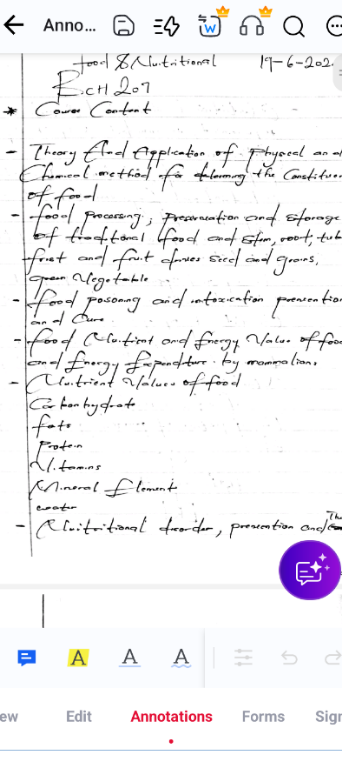 Anno...
W
food & Nutritional 19-6-202
BCH 207
* Course Content
- Theory And Application of Physical and
Chemical method for the Constitue
of food
- food processing, preservation and storage
of traditional food and stem, root, tub
fruit and fruit seed and grains,
green Vegetable
- food poisoning and intoxication prevention
and Cure
- food Nutrient and Energy Value of food
and Energy Expenditure by mammalians
- Nutrient Values of food
Carbohydrate
fats
Protein
Vitamins
Mineral Element
water
- Nutritional disorder, prevention and
A A A
ew Edit Annotations Forms Sign